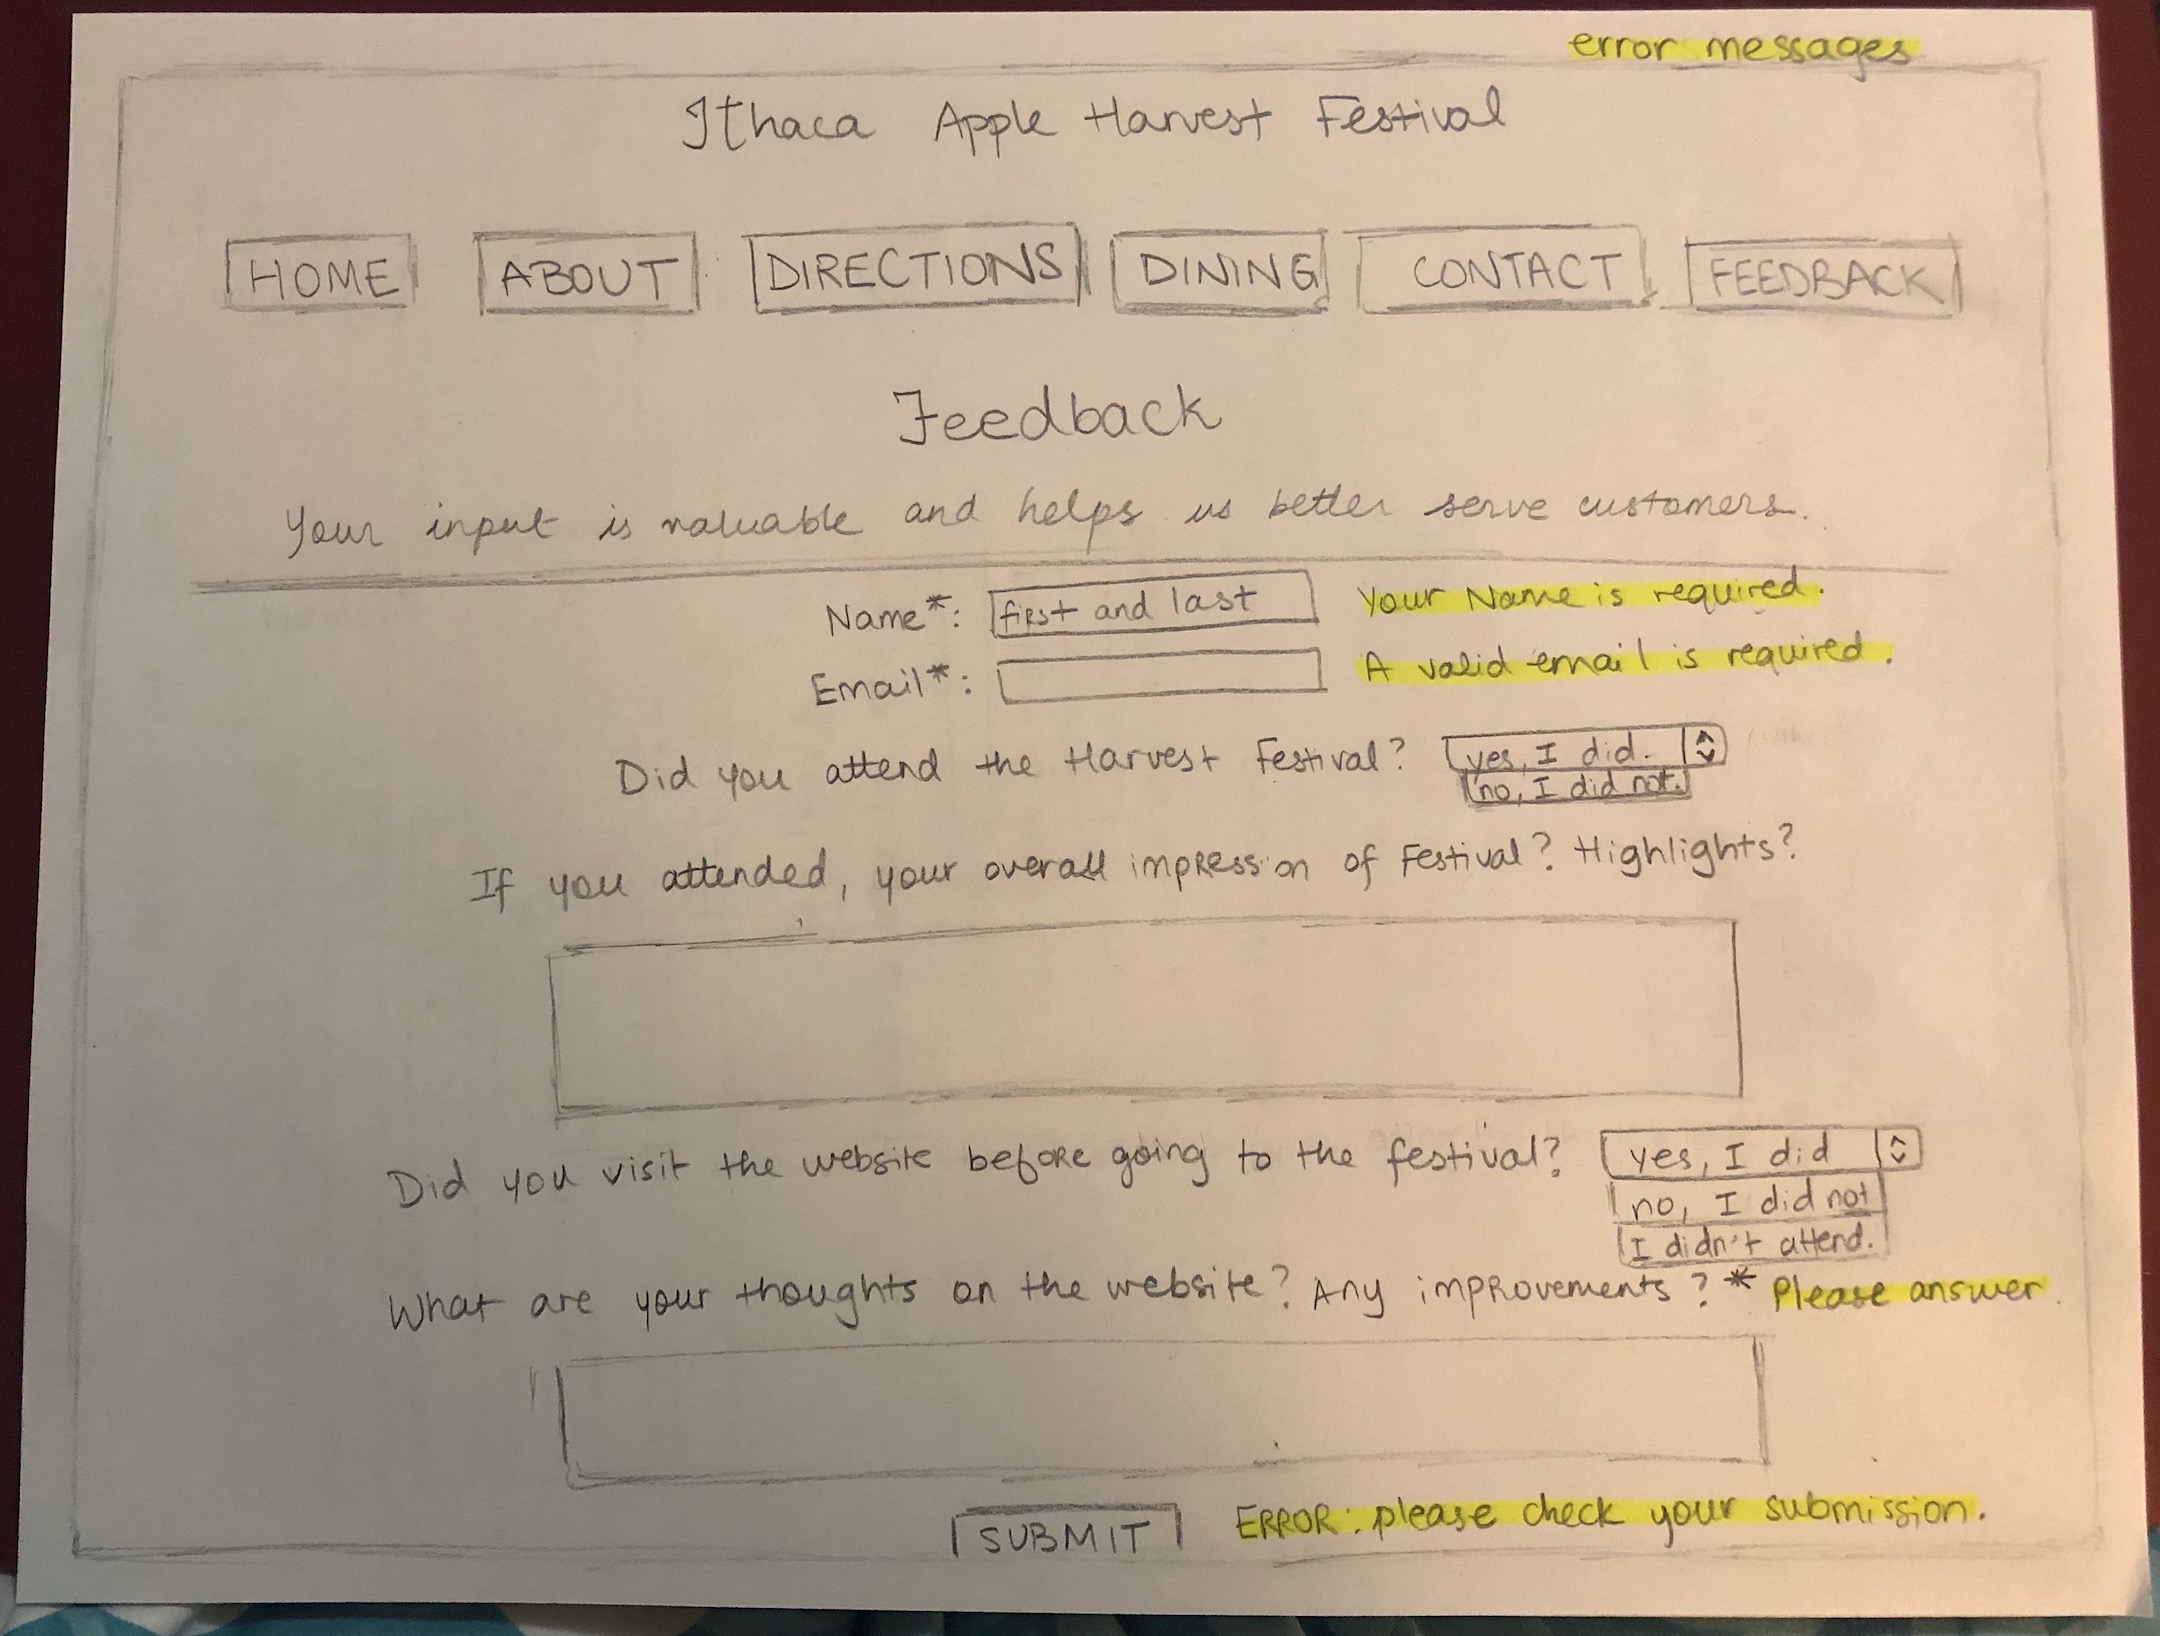 error messages
Ithaca Apple Harvest Festival
HOME ABOUT DIRECTIONS DINING CONTACT FEEDBACK
Feedback
Your input is valuable and helps us better serve customers.
Name*: first and last Your Name is required.
Email*: A valid email is required.
Did you attend the Harvest Festival? yes, I did.
no, I did not.
If you attended, your overall impression of Festival? Highlights?
Did you visit the website before going to the festival? yes, I did
no, I did not
I didn't attend.
What are your thoughts on the website? Any improvements? * Please answer.
SUBMIT ERROR: please check your submission.